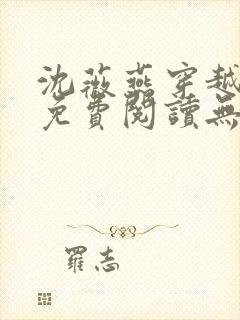 沈薇燕穿越
免費閱讀無
羅志